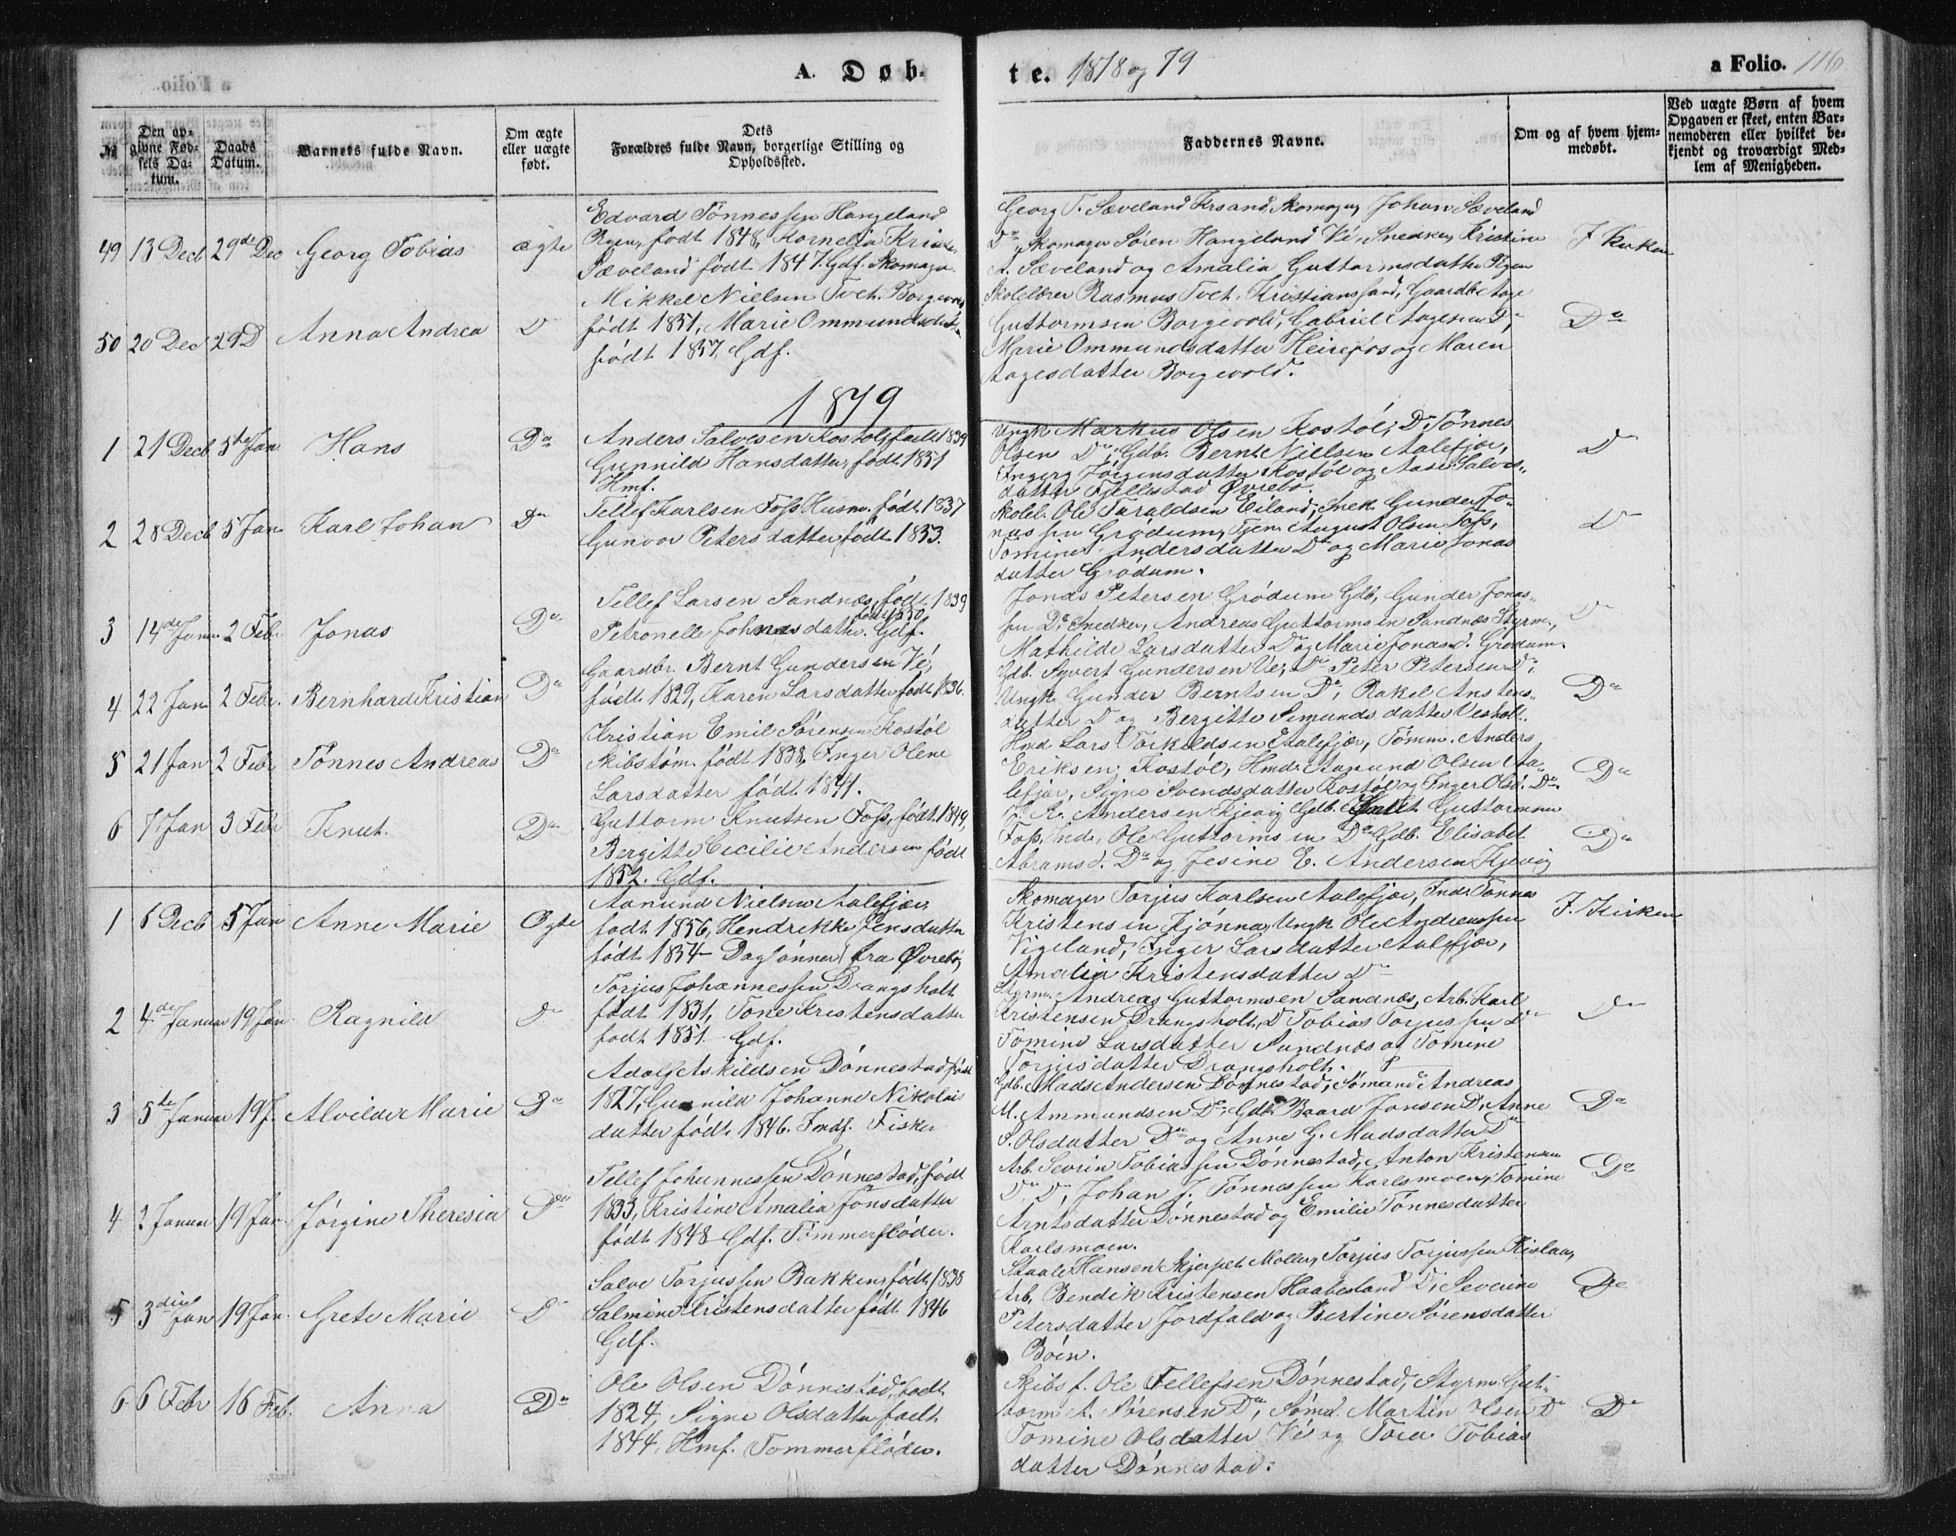 A. Døb-
te. 1878 og 79
a Folio. 116
№
Den op-
givne Fød-
sels Da-
tum.
Daabs
Datum.
Barnets fulde Navn.
Om ægte
eller uægte
født.
Dets
Forældres fulde Navn, borgerlige Stilling og
Opholdssted.
Faddernes Navne.
Om og af hvem hjem-
medøbt.
Ved uægte Børn af hvem
Opgaven er skeet, enten Bar-
nemoderen eller hvilket be-
kjendt og troværdigt Med-
lem af Menigheden.
49 13 Decb 29de Dec Georg Tobias ægte
Edvard Tønnessen Hangeland
født 1848, Kornelia
Sæveland født 1847. Gdf. Skomager
Georg T. Sæveland Krsand, Skomager Johan Sæveland
Do, Skomager Søren Hangeland Ve, Snedker, Kristine
A. Sæveland og Amalia Guttormsdatter
I Kirken
50 20 Dec 29 D Anna Andrea D
Mikkel Nielsen Tvet, Borgevold
født 1851, Marie Ommundsdatter
født 1857, Gdf.
Skolelærer Rasmus Tvet, Kristianssand, Gaardb. Aage
Guttormsen Borgevold, Gabriel Aagesen Do,
Marie Ommundsdatter Heirefos og Maren
Aagesdatter Borgevold.
Do
1879
1 21 Decb 5te Jan Hans Do
Anders Salvesen Kostøl, født 1839
Gunnild Hansdatter, født 1851
Hmf.
Ungk. Markus Olsen Kostøl, D. Tønnes
Olsen Do, Gdb. Bernt Nielsen Aalefjær,
Inger Jørgensdatter Kostøl og Aase Salves-
datter Fjellestad Øvrebø.
D
2 28 Decb 5 Jan Karl Johan Do
Tellef Karlsen Foss Husm. født 1837
Gunvor Petersdatter født 1853.
Skolel. Ole Taraldsen Eiland, Snek. Gunder Jo-
nassen Grødum, Tjen. August Olsen Foss,
Tomine Andersdatter Do og Marie Jonas
datter Grødum.
D
3 14de Jan 2 Feb Jonas Do
Tellef Larsen Sandnæs, født 1839
Petronelle Johnasdatter født 1850 Gdf.
Jonas Petersen Grødum Gdb, Gunder Jonas-
sen Do Snedker, Andreas Guttormsen Sandnæs Styrm.,
Mathilde Larsdatter Do og Marie Jonasd. Grødum.
D
4 22 Jan 2 Febr. Bernhard Kristian Do
Gaardbr. Bernt Gundersen Ve,
født 1829, Karen Larsdatter født 1836.
Gdb. Syvert Gundersen Ve, Do Peter Petersen Do,
Ungk. Gunder Berntsen Do, Rakel Anstens-
datter D og Bergitte Simundsdatter Vesholt.
Do
5 21 Jan 2 Febr Tønnes Andreas Do
Kristian Emil Sørensen Kostøl
Skibstøm. født 1838, Inger Olene
Larsdatter født 1841.
Hmd Lars Torkildsen Aalefjær, Tømm. Anders
Eriksen Kostøl, Hmd. Aanund Olsen Aa-
lefjær, Signe Svendsdatter Kostøl og Inger Olsd. Do.
Do
6 7 Jan 3 Febr Knut. Do
Guttorm Knutsen Foss, født 1849,
Bergitte Cecilie Andersen født
1852. Gdf.
Andersen Kjevig Gdb. Knut Guttormsen
Foss, Ind. Ole Guttormsen Do Gdb. Elisabet
Abramsd. Do og Jesine E. Andersen Kjevig
Do
1 6 Decb 5 Jan Anne Marie Ægte
Aanund Nielsen Aalefjær,
født 1856, Hendrikke Jensdatter
født 1854 - Daglønner (fra Øvrebø)
Skomager Torjus Karlsen Aalefjær, Ind. Tønnes
Kristensen Kjønnas, Ungk. Ole Andreassen
Vigeland, Inger Larsdatter Aalefjær,
Amalia Kristensdatter Do
I Kirken
2 4de Januar 19 Jan Ragnild D
Torjus Johannessen Drangsholt
født 1831, Tone Kristensdatter
født 1851 - Gdf.
Styrm. Andreas Guttormsen Sandnæs, Arb. Karl
Kristensen Drangsholt, D Tobias Torjussen Do
Tomine Larsdatter Sandnæs og Tomine
Torjusdatter Drangsholt.
Do
3 5te Januar 19 J. Alvilde Marie Do
Adolf Askildsen Dønnestad født
1827, Gunnild Johanne Nikolai
datter født 1846. Indf. Fisker
Gdb. Mads Andersen Dønnestad, Sømand Andreas
M. Ammundsen Do, Gdb. Baard Jonsen D, Anne
S. Olsdatter Do og Anne G. Madsdatter Do
Do
4 Januar 19 Jan Jørgine Theresia Do
Tellef Johannessen Dønnestad, født
1833, Kristine Amalia Jonsdatter
født 1848 Gdf. Tømmerfløder.
Arb. Sevrin Tobiassen Dønnestad, Anton Kristensen
D D, Johan J. Tønnessen Karlsmoen, Tomine
Arntsdatter Dønnestad og Emilie Tønnesdatter
Karlsmoen.
Do
5 3die Jan 19 Jan. Grete Marie D
Salve Torjussen Bakken, født 1838
Salmine Kristensdatter født 1846
Gdf.
Staale Hansen Skjerpet Møller, Torjus Torjussen Rislaa,
Arb. Bendik Kristensen Haabesland D, Severine
Petersdatter Jordfald og Bertine Sørensdatter
Boen.
Do
6 6 Febr 16 Feb. Anna Do
Ole Olsen Dønnestad, født
1824, Signe Olsdatter født
1844, Hmf. Tømmerfløder.
Skibsf. Ole Tellefsen Dønnestad, Styrm. Gut-
torm A. Sørensen Do, Sømd. Martin Olsen Do
Tomine Olsdatter Ve og Tora Tobias
datter Dønnestad.
Do